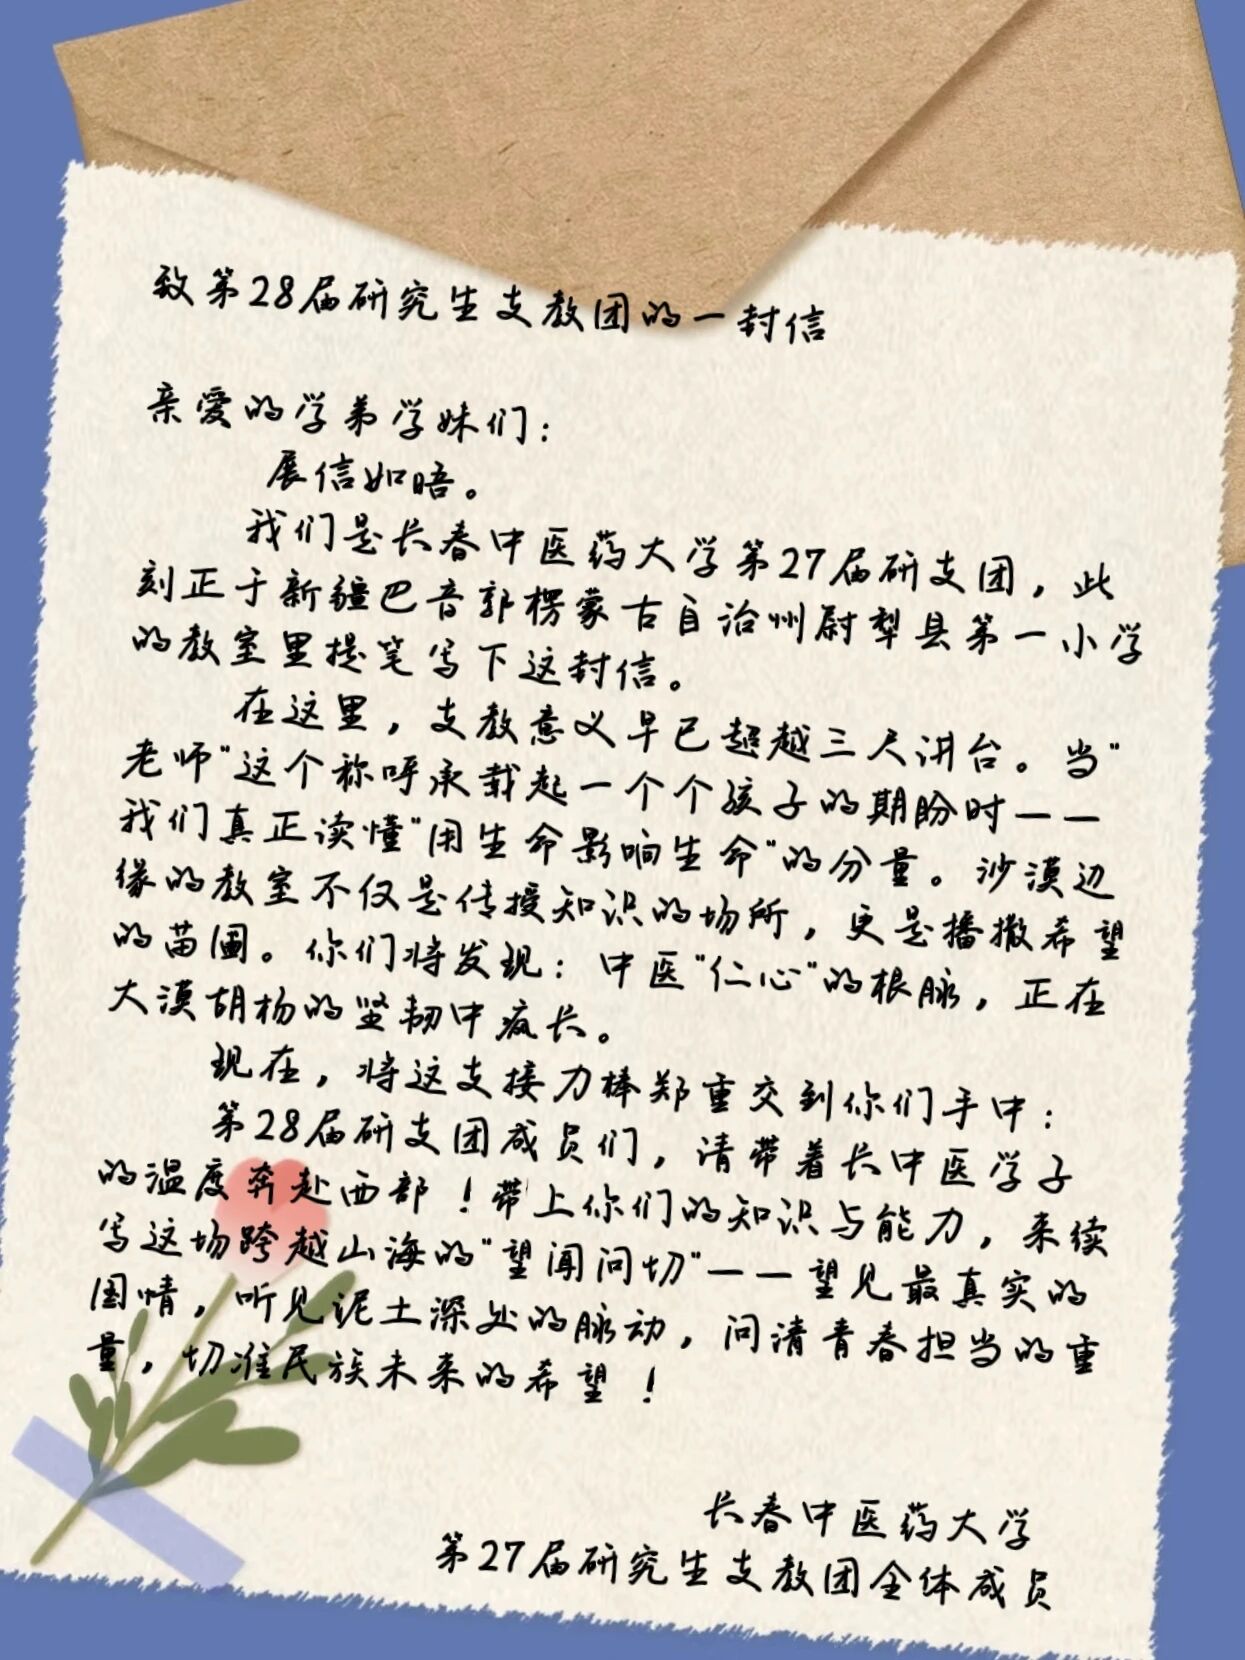 致第28届研究生支教团的一封信
亲爱的学弟学妹们：
展信如晤。
我们是长春中医药大学第27届研支团，此
刻正于新疆巴音郭楞蒙古自治州尉犁县第一小学
的教室里提笔写下这封信。
在这里，支教意义早已超越三尺讲台。当"
老师"这个称呼承载起一个个孩子的期盼时——
我们真正读懂"用生命影响生命"的分量。沙漠边
缘的教室不仅是传授知识的场所，更是播撒希望
的苗圃。你们将发现：中医"仁心"的根脉，正在
大漠胡杨的坚韧中疯长。
现在，将这支接力棒郑重交到你们手中：
第28届研支团成员们，请带着长中医学子
的温度奔赴西部！带上你们的知识与能力，来续
写这场跨越山海的"望闻问切"——望见最真实的
国情，听见泥土深处的脉动，问清青春担当的重
量，切准民族未来的希望！
长春中医药大学
第27届研究生支教团全体成员